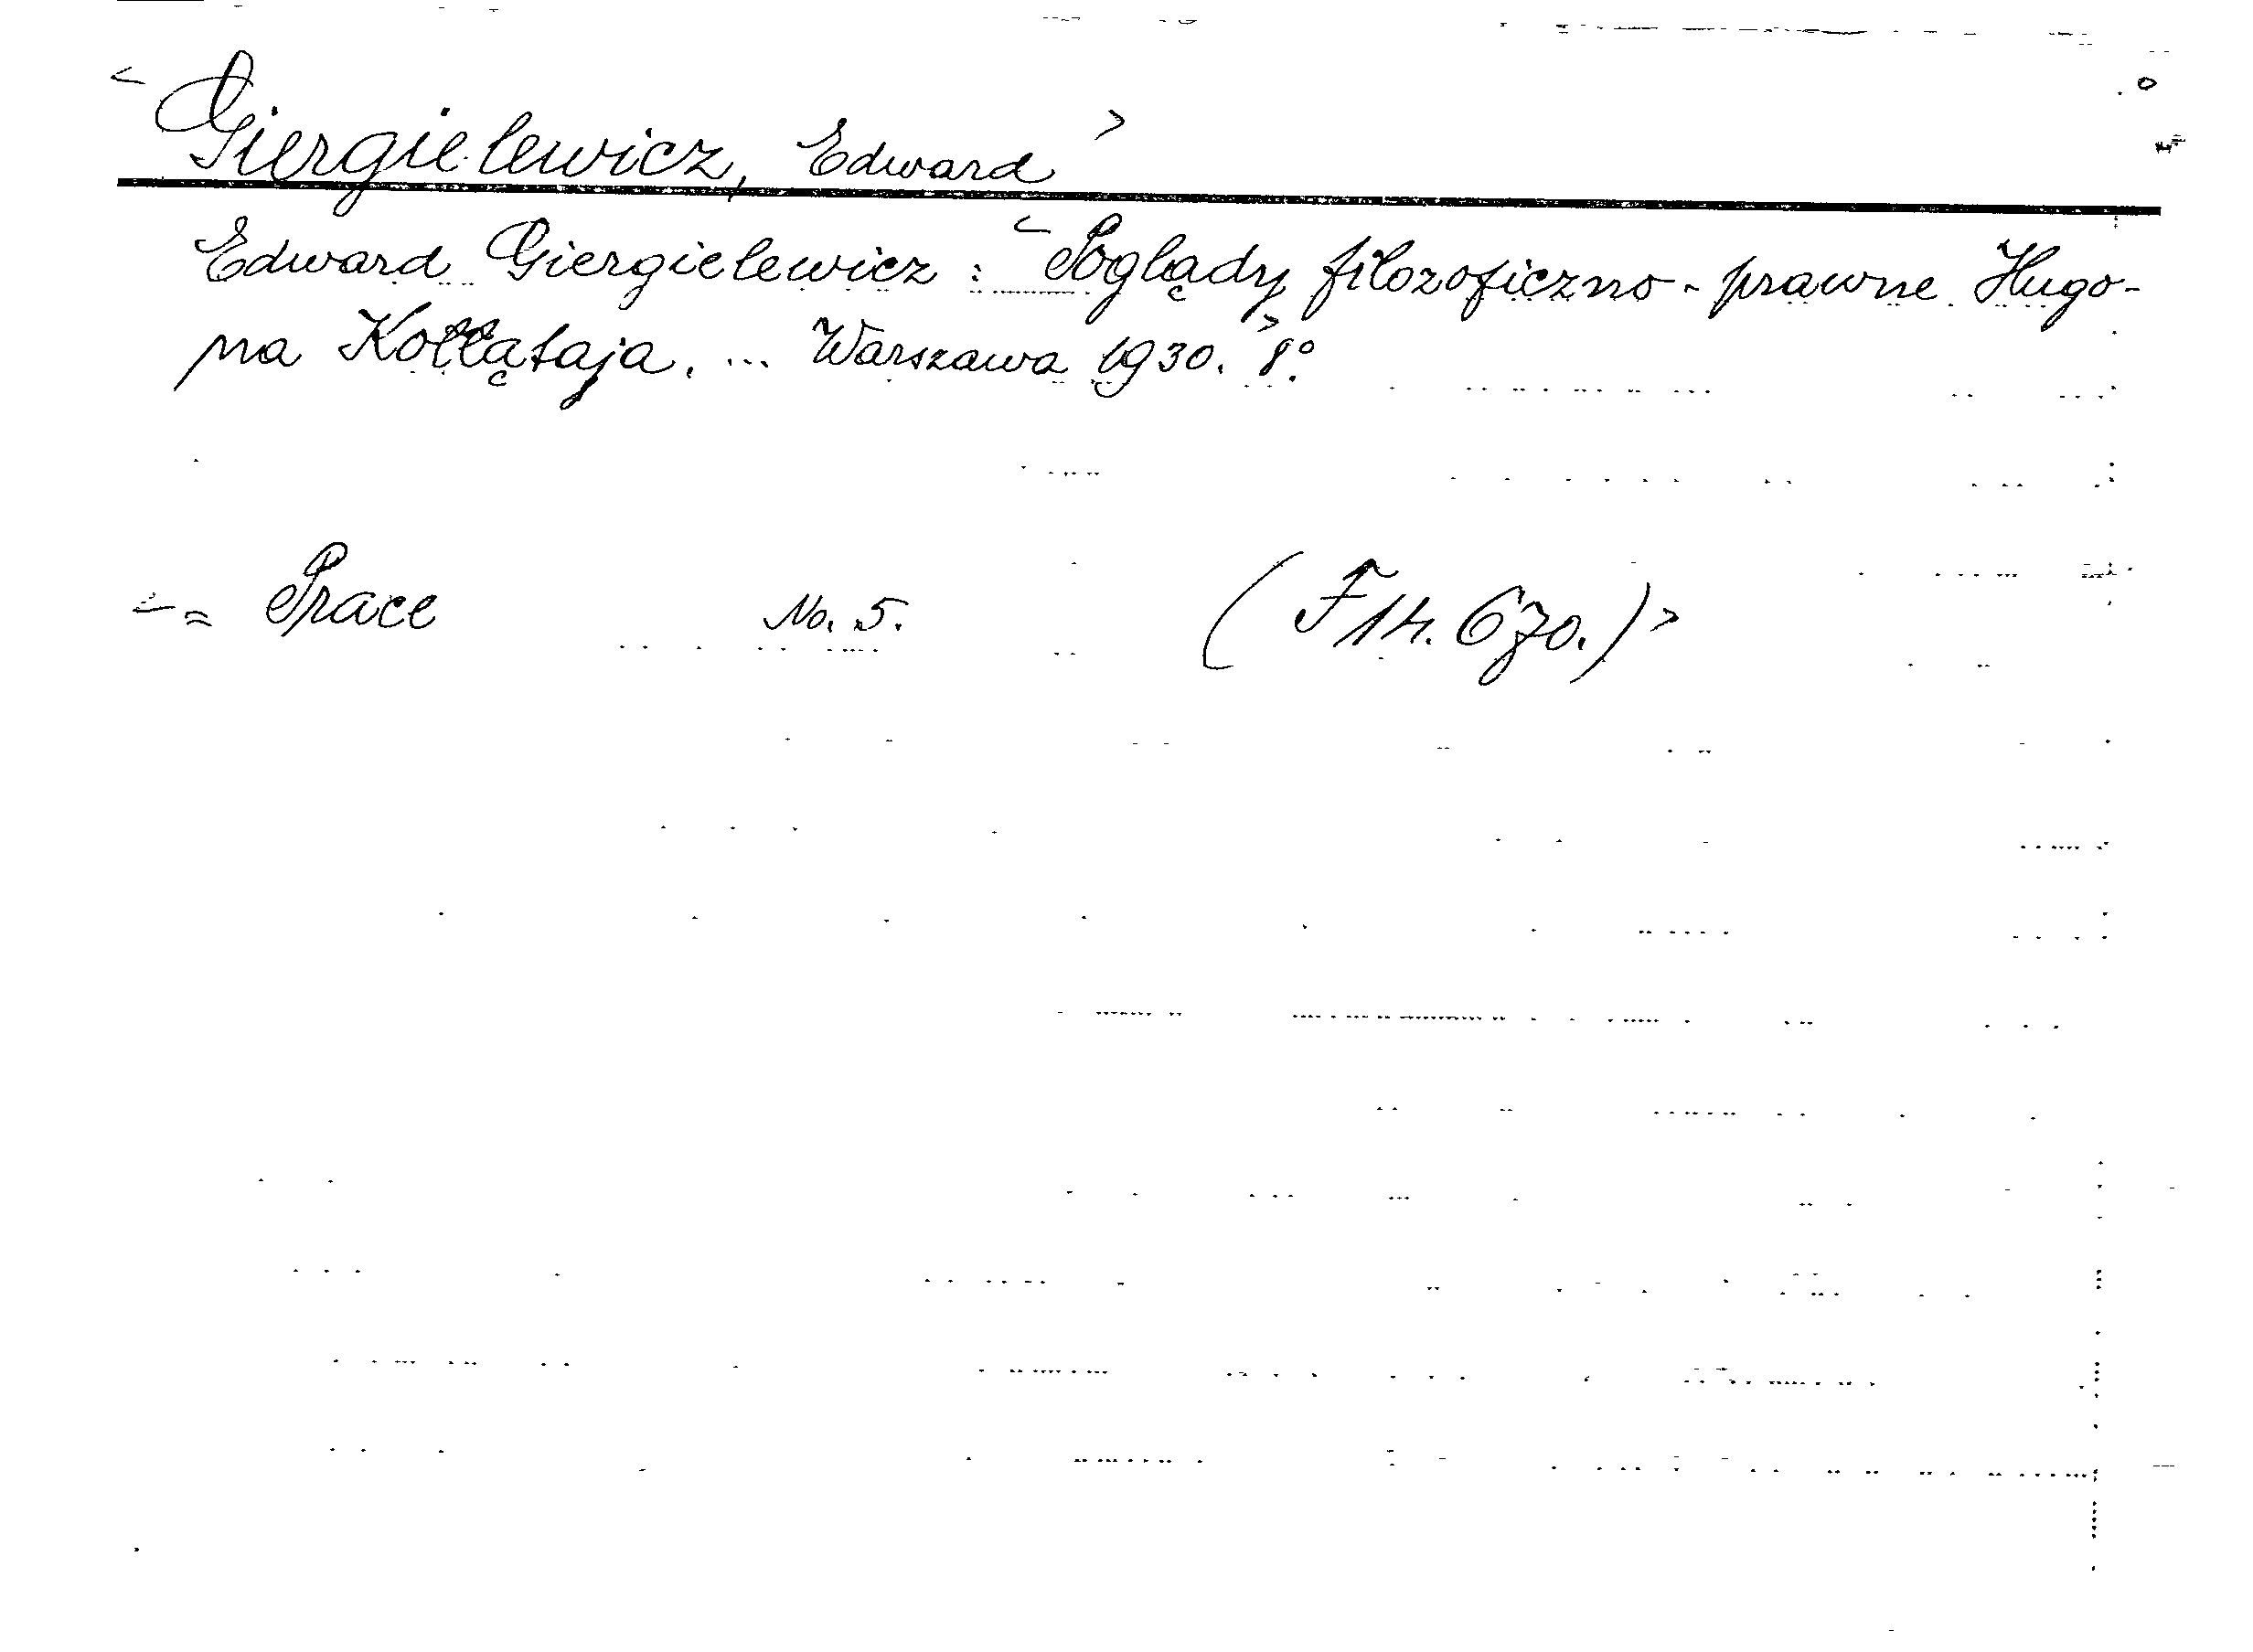 < Giergielewicz, Edward >
Edward Giergielewicz: < Poglądy filozoficzno-prawne Hugo-
na Kołłątaja. ... Warszawa 1930. > 8°.
< = Prace No. 5. (F 14. 670.) >